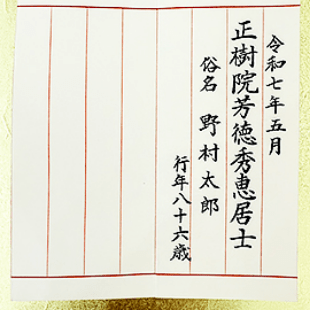 令和七年五月
正樹院芳徳秀恵居士
俗名 野村太郎
行年八十六歳